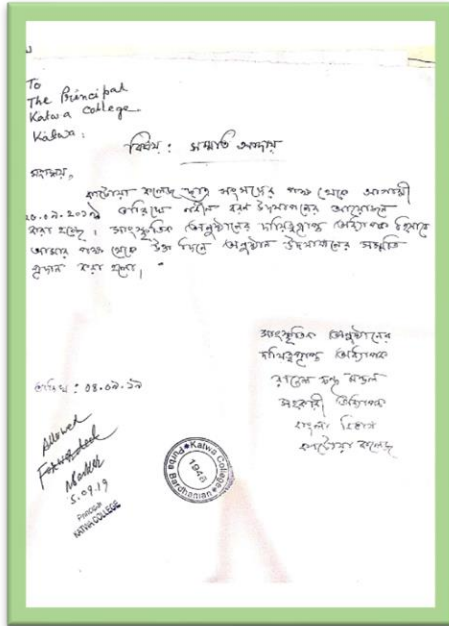 To
The Principal
Katwa College.
Katwa.
বিষয় : সম্মতি আদায়
মহাশয়,
কাটোয়া কলেজ ছাত্র সংসদের পক্ষ থেকে আগামী
তারিখে নবীন বরণ উদযাপনের আয়োজন
করা হচ্ছে। সাংস্কৃতিক অনুষ্ঠানের দায়িত্বপ্রাপ্ত অধ্যাপক হিসাবে
আমার পক্ষ থেকে উক্ত দিনে অনুষ্ঠান উদযাপনের সম্মতি
প্রদান করা হলো।
সাংস্কৃতিক অনুষ্ঠানের
দায়িত্বপ্রাপ্ত অধ্যাপক
মন্ডল
সহকারী অধ্যাপক
বাংলা বিভাগ
কাটোয়া কলেজ
তারিখ : 04.09.19
Allowed
Forwarded
5.09.19
PRINCIPAL
KATWA COLLEGE
Katwa College
1948
Purba Bardhaman